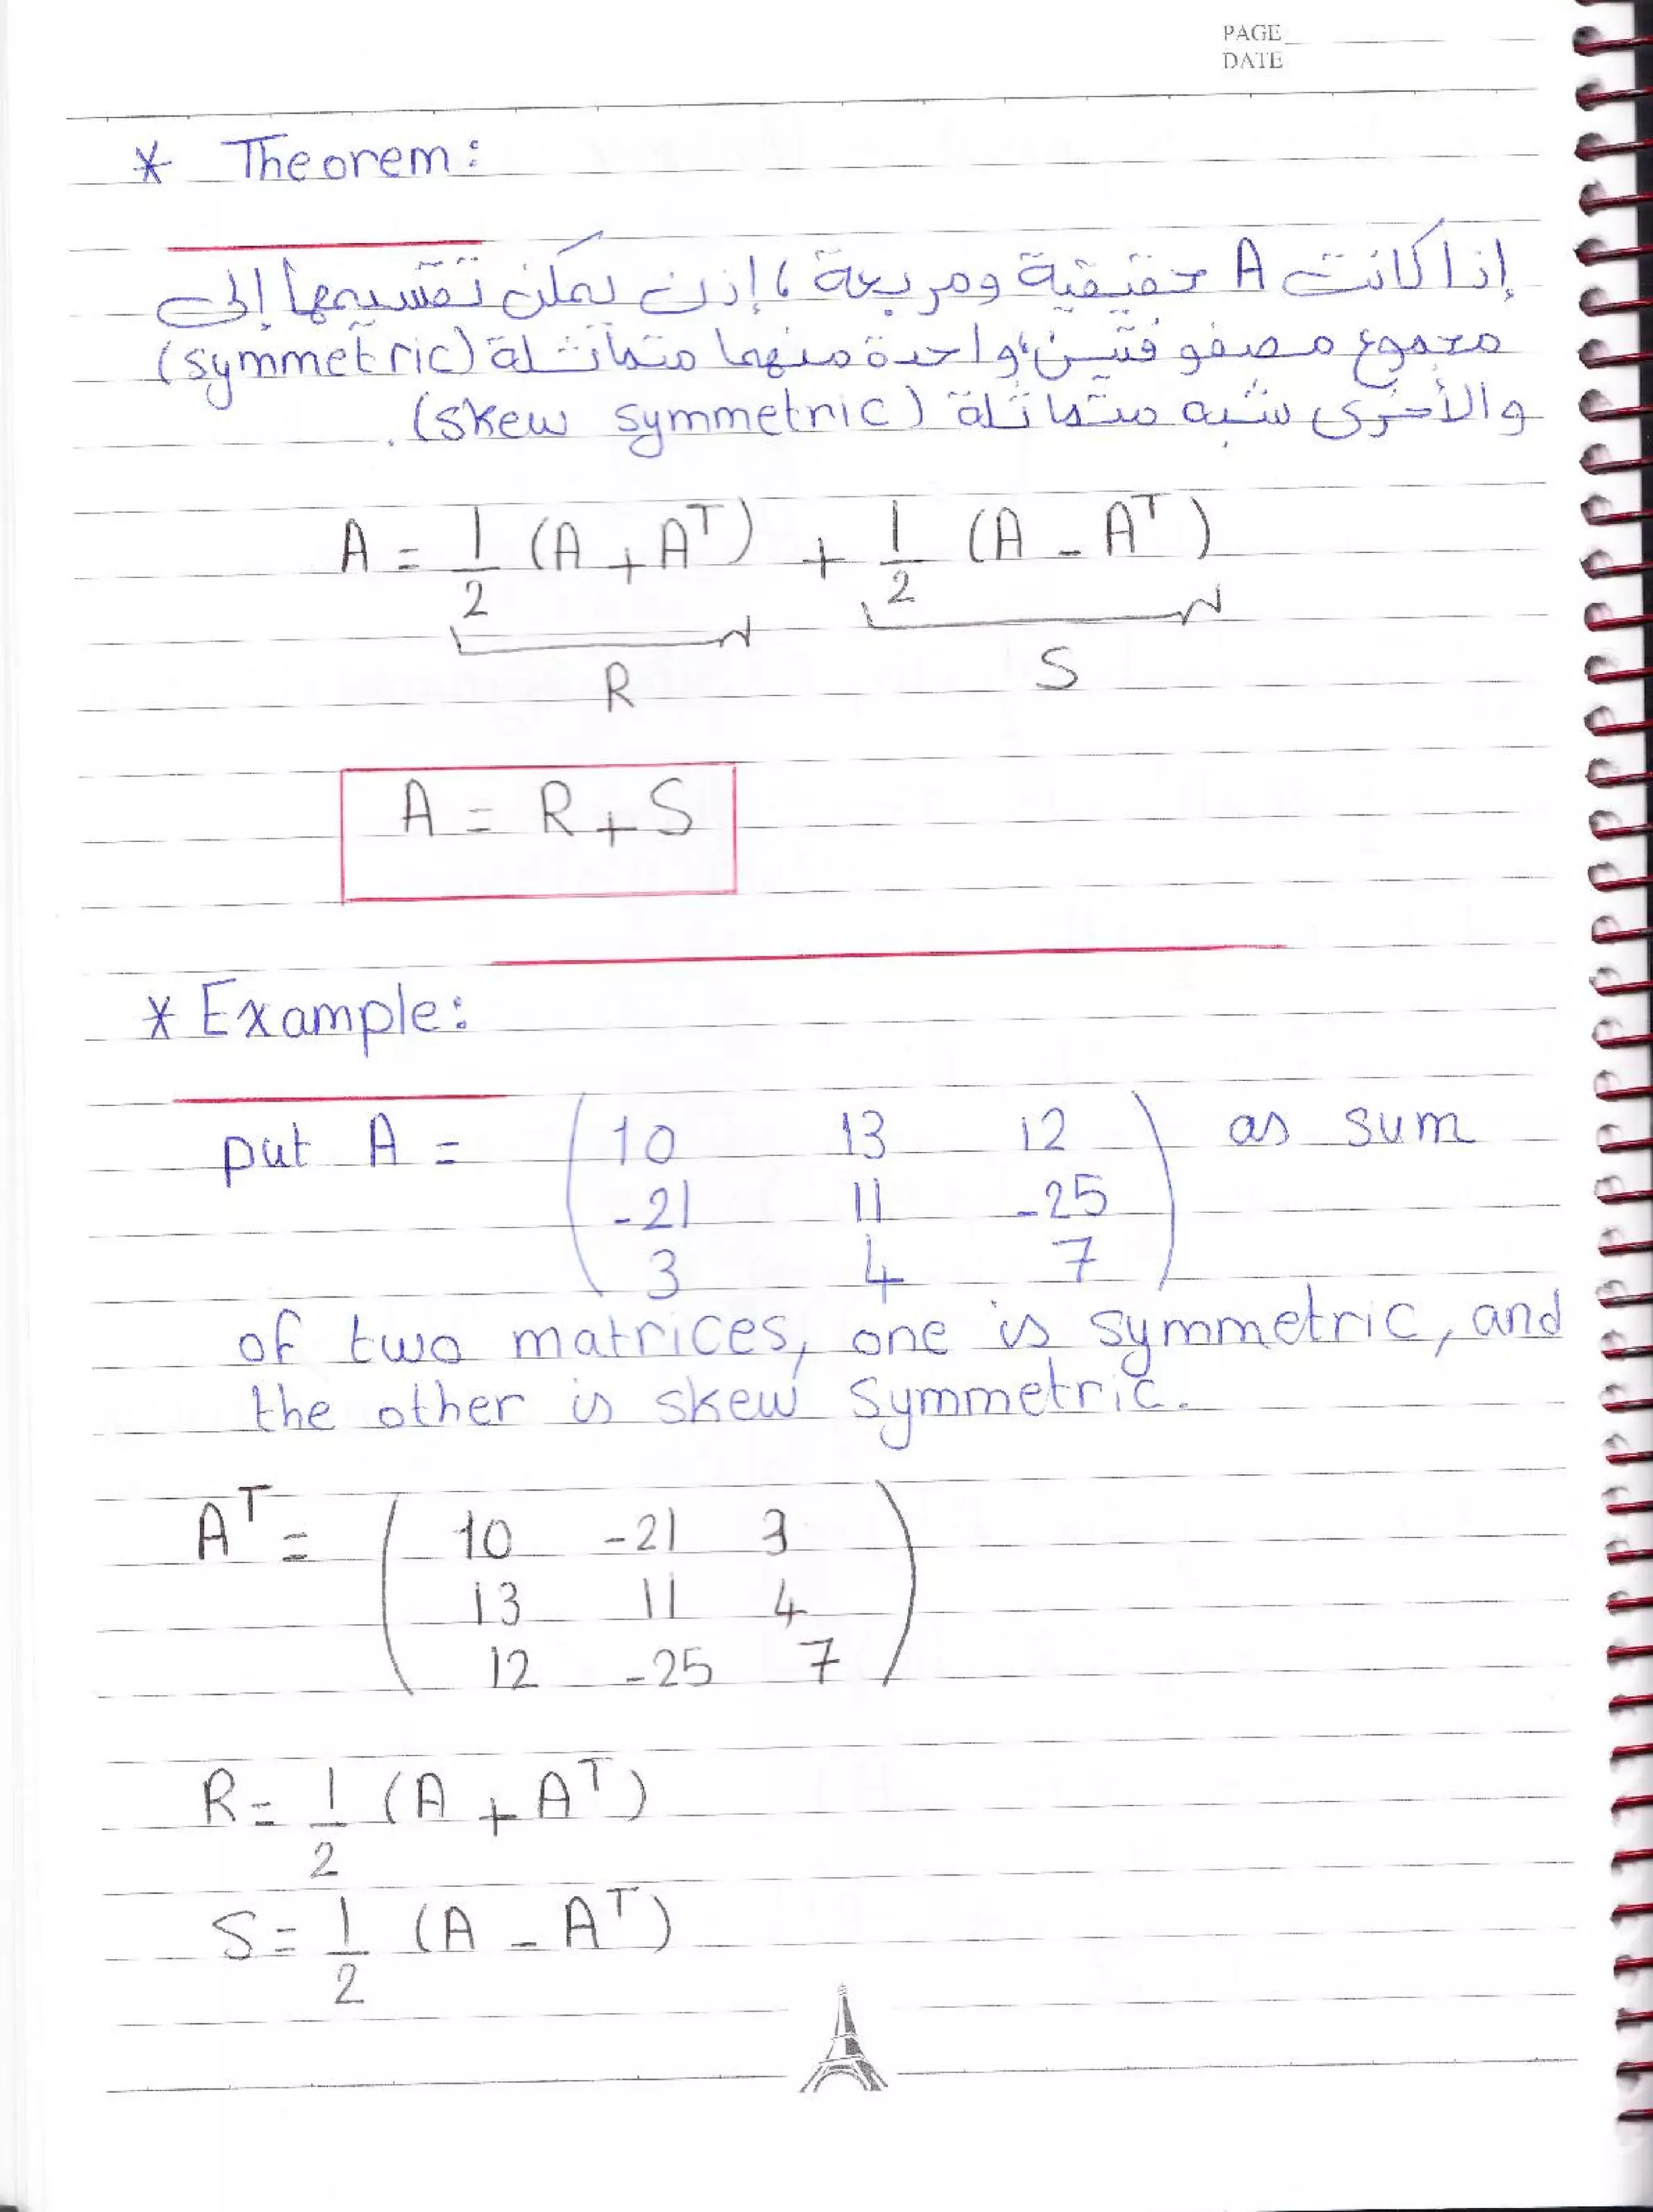 PAGE
DATE
* Theorem:
إذا كانت A حقيقية ومربعة ، إذن يمكن تقسيمها إلى
مجموع مصفوفتين، واحدة منهما متماثلة (symmetric)
والأخرى شبه متماثلة (skew symmetric).
A = 1/2 (A + Aᵀ) + 1/2 (A - Aᵀ)
R S
A = R + S
* Example:
put A = ( 10 13 12 ) as sum
-21 11 -25
3 4 7
of two matrices, one is symmetric, and
the other is skew symmetric.
Aᵀ = ( 10 -21 3 )
13 11 4
12 -25 7
R = 1/2 (A + Aᵀ)
S = 1/2 (A - Aᵀ)